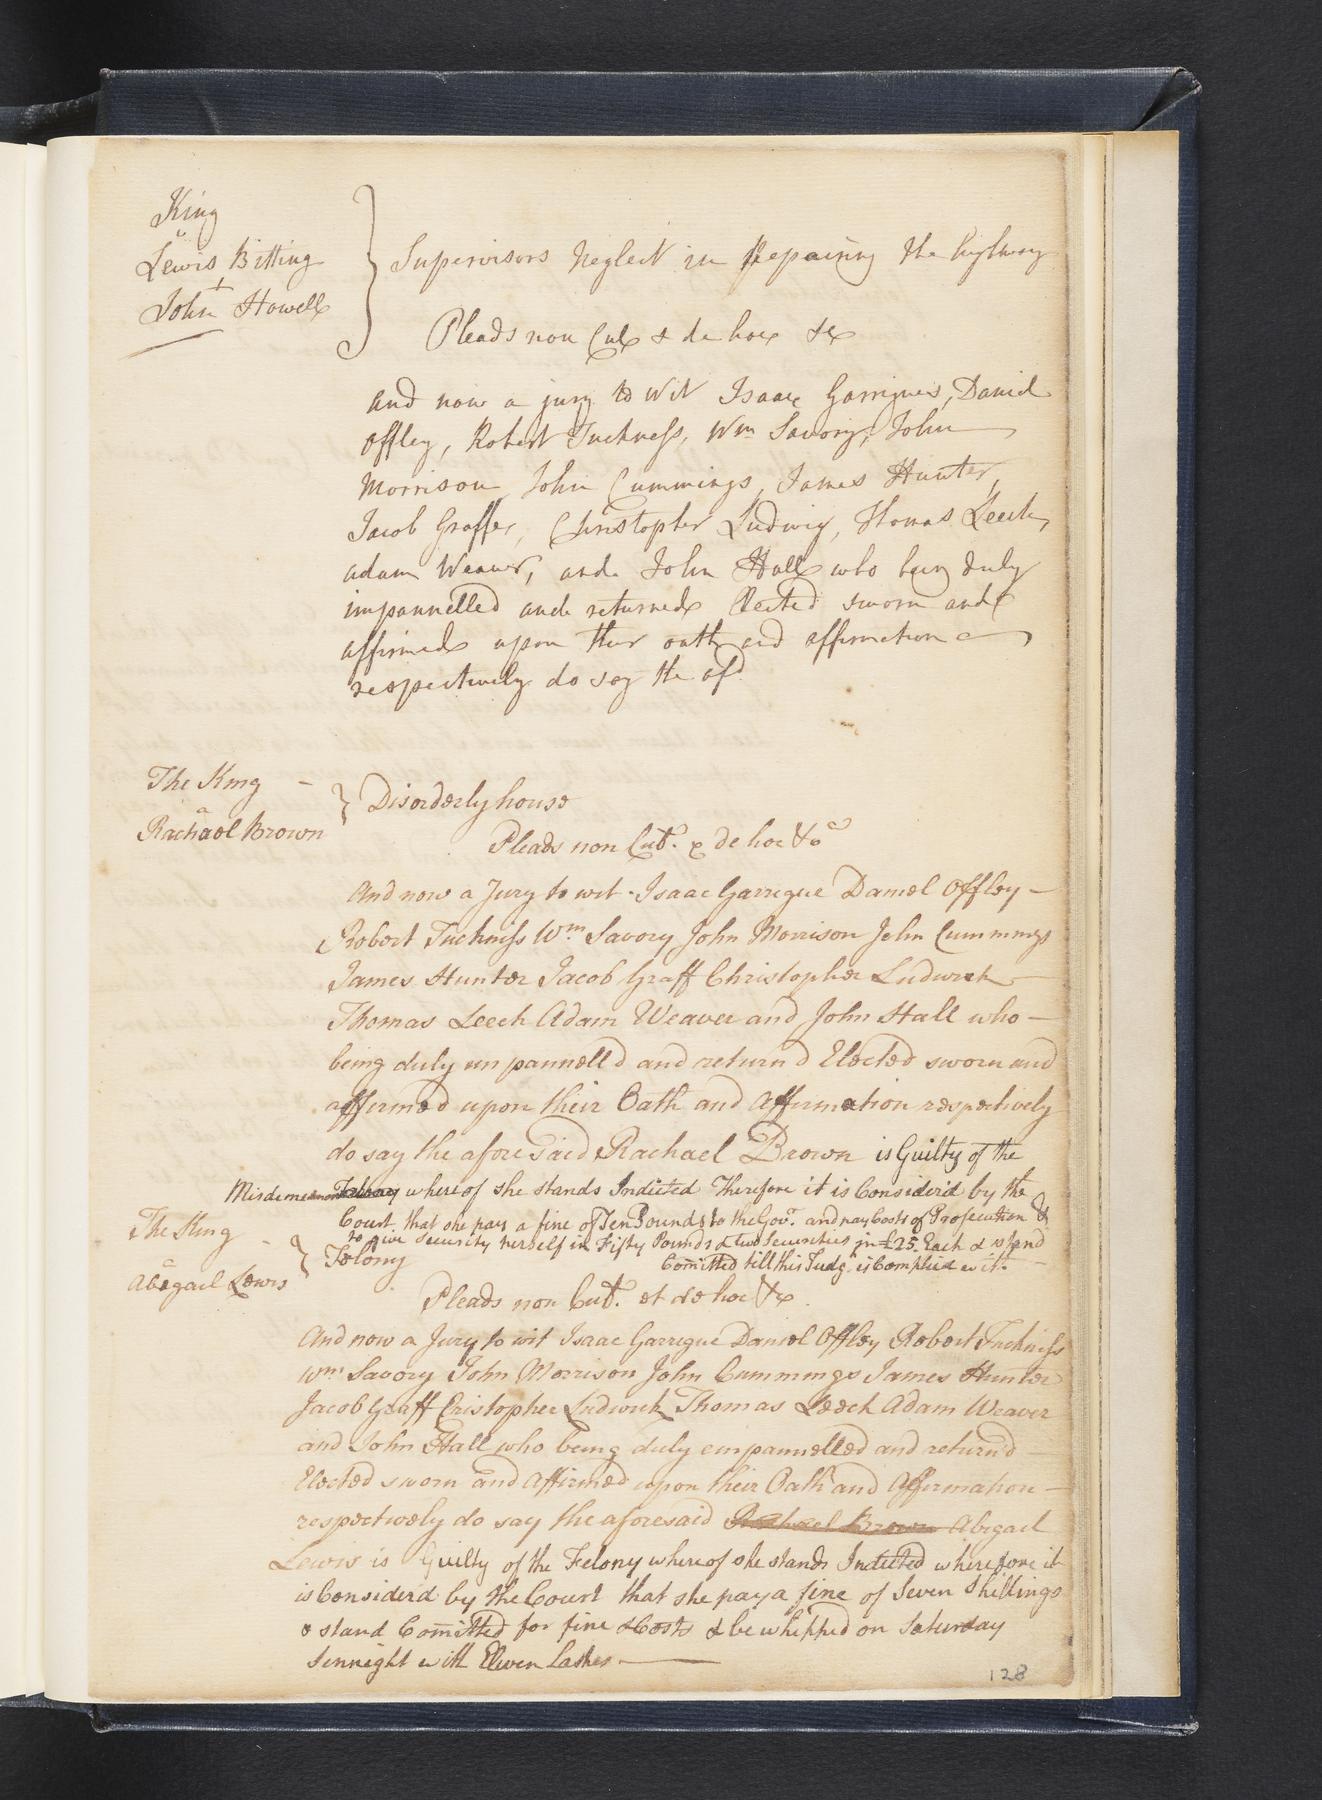 King
v
Lewis Bitting
+
John Howell
Supervisors neglect in repairing the highway
Pleads non Cul & de hoc &c
and now a jury to wit Isaac Garrigues, Daniel
Offley, Robert Tuckness, Wm Savory, John
Morrison, John Cummings, James Hunter,
Jacob Graffe, Christopher Ludwig, Thomas Leech,
adam Weaver, and John Hall who being duly
impannelled and returned Elected sworn and
affirmed upon their oath and affirmation
respectively do say the afd
The King
a
Rachael Brown
Disorderly house
Pleads non Cut. & de hoc &c
And now a Jury to wit Isaac Garrigue Daniel Offley
Robert Tuckniss Wm Savory John Morrison John Cummings
James Hunter Jacob Graff Christopher Ludwick
Thomas Leech Adam Weaver and John Hall who
being duly impannelld and returnd Elected sworn and
affirmed upon their Oath and Affirmation respectively
do say the aforesaid Rachael Brown is Guilty of the
Misdemeanor Felony whereof she stands Indicted Therefore it is Considerd by the
Court that she pay a fine of Ten Pounds to the Govr. and pay Costs of Prosecution &
to give Security herself in Fifty Pounds & two Securities in £25. Each & stand
Comitted till this Judg. is Complied with.
The King
a
Abigail Lewis
Felony
Pleads non Cut. et de hoc &c
And now a Jury to wit Isaac Garrigue Daniel Offley Robert Tuckniss
Wm Savory John Morrison John Cummings James Hunter
Jacob Graff Cristopher Ludwick Thomas Leech Adam Weaver
and John Hall who being duly empannelled and returnd
Elected sworn and Affirmed upon their Oath and Affirmation
respectively do say the aforesaid Rachael Brown Abigail
Lewis is Guilty of the Felony whereof she stands Indicted wherefore it
is Considerd by the Court that she pay a fine of Seven Shillings
& stand Comitted for fine & Costs & be whipped on Saturday
Sennight with Eleven Lashes
128